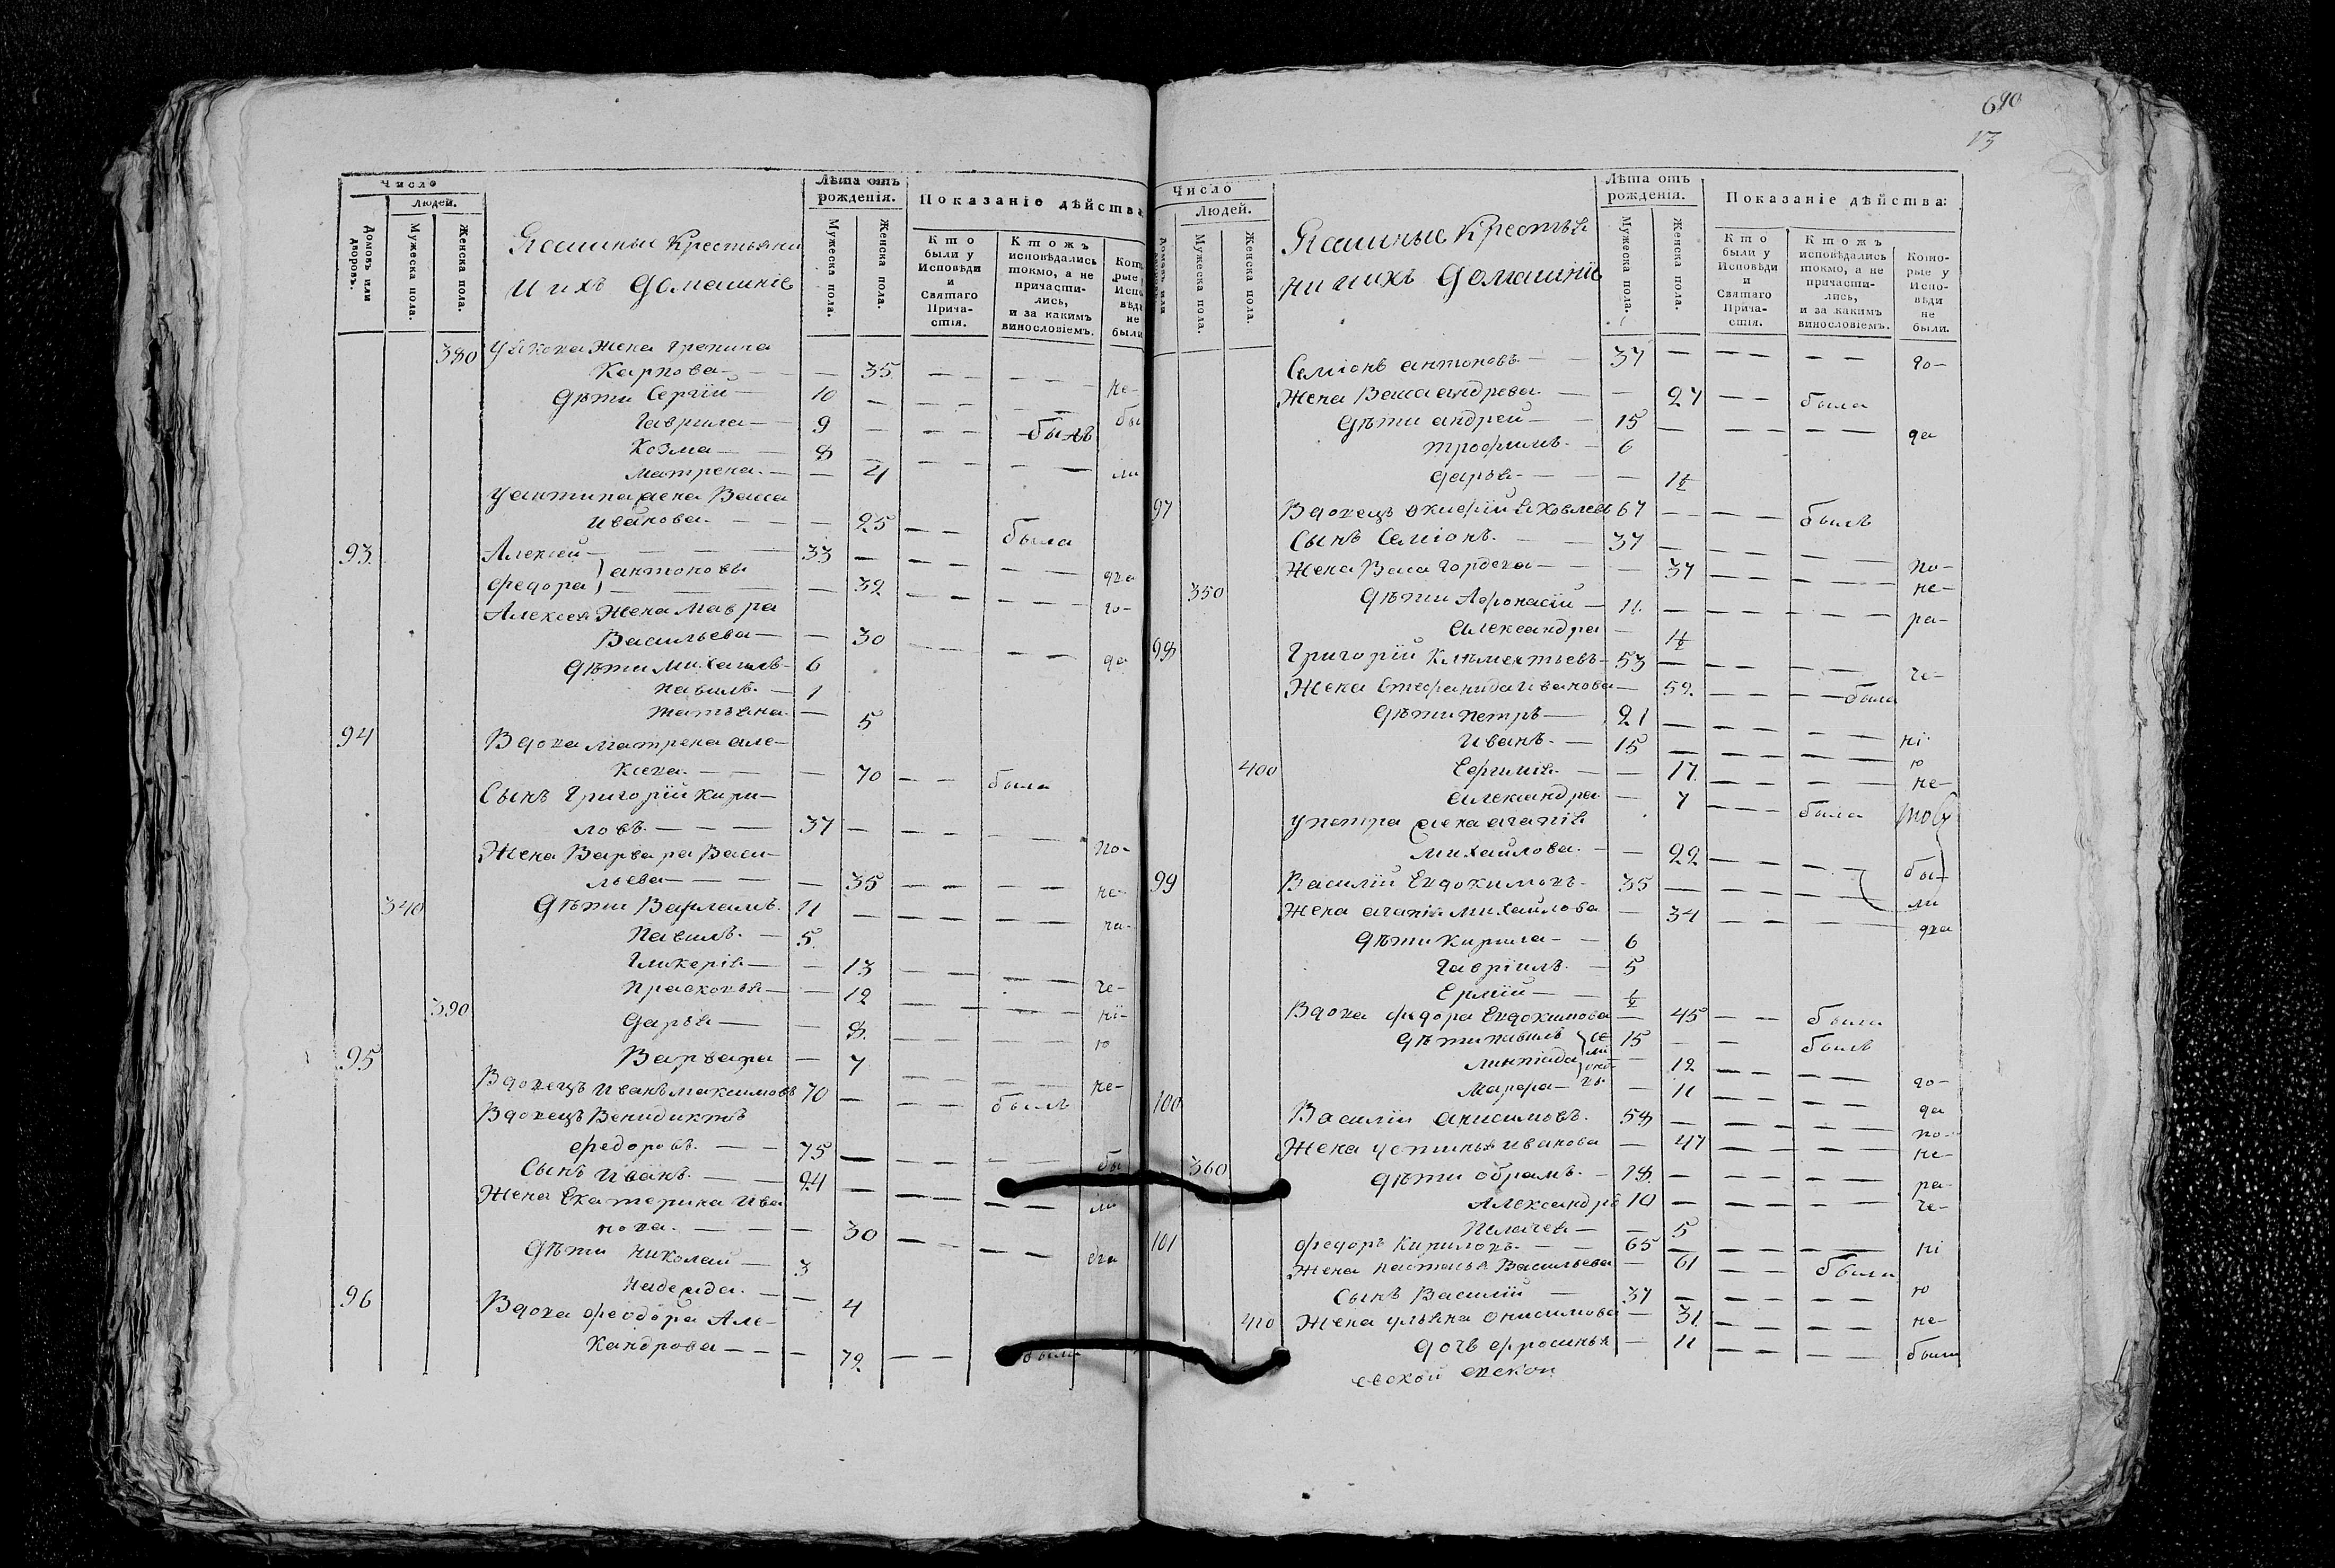 Число
Людей.
Домовъ или дворовъ.
Мужеска пола.
Женска пола.
Яашные Крестьяни
и ихъ Домашніе
Лѣта отъ рожденія.
Мужеска пола.
Женска пола.
Показаніе дѣйства
Кто были у Исповѣди и Святаго Причастія.
Ктожъ исповѣдались токмо, а не причастились, и за какимъ винословіемъ.
были
380 Жена
Карпова — — 35 — — — — — не-
Дѣти Сергій — 10 — — — — —
Гаврила — 9 — — — былъ бы
Козма — 8 — — — — —
Матрена. — — 4 ли
Васса
Иванова. — — 25 — — была
93 Алексей — 33 — — — — —
Федора } антоновы — 32 — — — —
Алексея Жена Мавра го-
Васильева — — 30 — — — — да
Дѣти Михаилъ — 6
Павилъ. — 1
Татьяна. — 5
94 Вдова Матрена але-
— — 70 — — была
Сынъ Григорій Кири-
ловъ. — — — 37 — — — — —
Жена Варвара Васи- по-
льева — — — — 35 — — — — не-
340 Дѣти Варламъ. 11 — — — — —
Павилъ. — 5.
Гликерія — — 13 — — — —
Прасковья — — 12 — — — — че-
390 Дарья — — 8. — — — — ні-
Варвара — 7 — — — — ю
95 Вдовецъ Иванъ Максимовъ 70 — — — былъ не-
Вдовецъ Венидиктъ
Федоровъ. — — 75 — — — — — бы
Сынъ Иванъ. — — 24 — — — — — ли
Жена Екатерина Ива
нова. — — — — 30 — — — —
Дѣти Николай — 3
Надежда. — — 4
96 Вдова Феодора Але-
ксандрова — — — 72 — — была
690
13
Число
Людей.
Мужеска пола.
Женска пола.
Яашные Крестья
ни и ихъ Домашніе
Лѣта отъ рожденія.
Мужеска пола.
Женска пола.
Показаніе дѣйства:
Кто были у Исповѣди и Святаго Причастія.
Ктожъ исповѣдались токмо, а не причастились, и за какимъ винословіемъ.
Которые у Исповѣди не были.
Семіонъ антоновъ. — — 37 — — — — — до-
Жена Васса андреева. — — 27 — — была
Дѣти андрей — 15 — — — — — да
трофимъ. — 6
дарья — — — 1½
97 Вдовецъ 67 — — — былъ
Сынъ Семіонъ. — — 37 — — — — —
Жена Васса Гордеева — — 37 — — — — по-
350 Дѣти Афонасій — 11. — — — — — не-
александра — 1½ ра-
98 Григорій Климентьевъ — 53 — — — — —
Жена Стефанида Иванова — 52. — — — — была че-
Дѣти Петръ — 21 — — — — —
Иванъ. — 15 — — — — — ні
400 — — 17. — — — — ю
александра — 7 — — была не-
у петра жена агапія
Михайлова. — — 22 — — — — бы-
99 Василій Евдокимовъ. 35 — — — — — ли
Жена агапія Михайлова — 34 — — — —
Дѣти Кирила — — 6
Гавріилъ. — 5
Ермій — — ½
Вдова Федора Евдокимова — 45 — — была
Дѣти павилъ 15 — — былъ
— 12 — — — —
Марфа — — 11 до-
100 Василій анисимовъ. 58 — — — — — да
Жена устинья Иванова — 47 — — — — по-
360 Дѣти — 18. — — — — — не-
Александръ 10 — — — — — ра-
Пелагея — — 5 че-
101 Федоръ Кириловъ. — — 65 — — — — — ні
Жена настасья Васильева — 61 — — была
Сынъ Василій — 37 — — — — — ю
410 Жена ульяна Онисимова — 31. — — — — не-
дочь ефросинья — 11 — — — — были